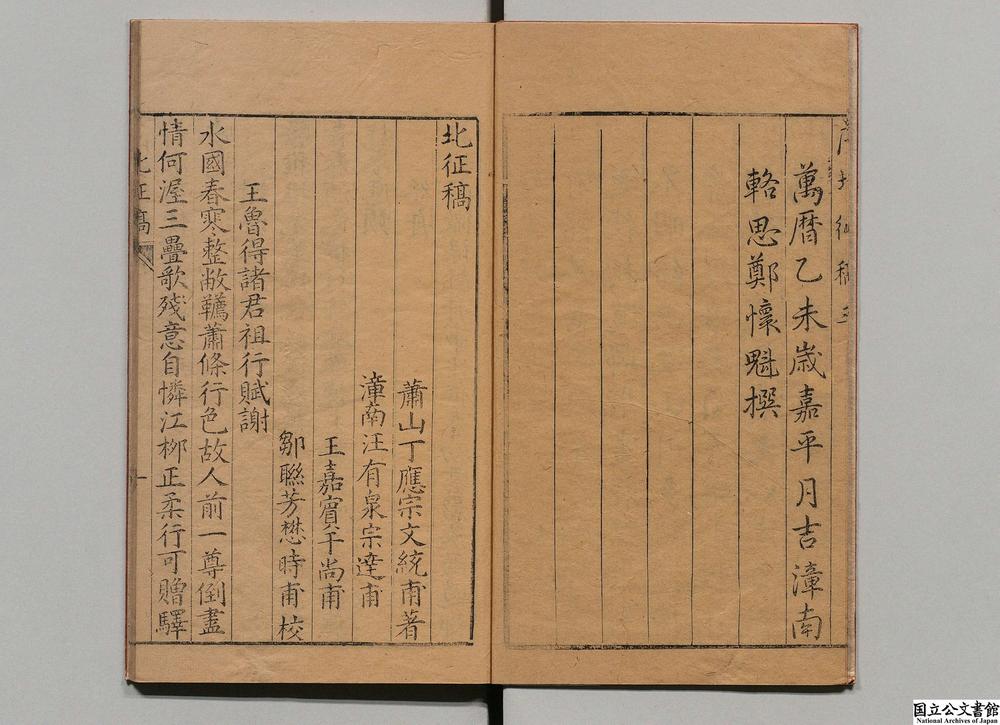 萬曆乙未歲嘉平月吉漳南
輅思鄭懷魁撰
北征稿
蕭山丁應宗文統甫著
漳南汪有泉宗達甫
王嘉賓干尚甫
鄒聯芳懋時甫校
王魯得諸君祖行賦謝
水國春寒整敝韉蕭條行色故人前一尊倒盡
情何渥三疊歌殘意自憐江柳正柔行可贈驛
北征稿
一
国立公文書館
National Archives of Japan